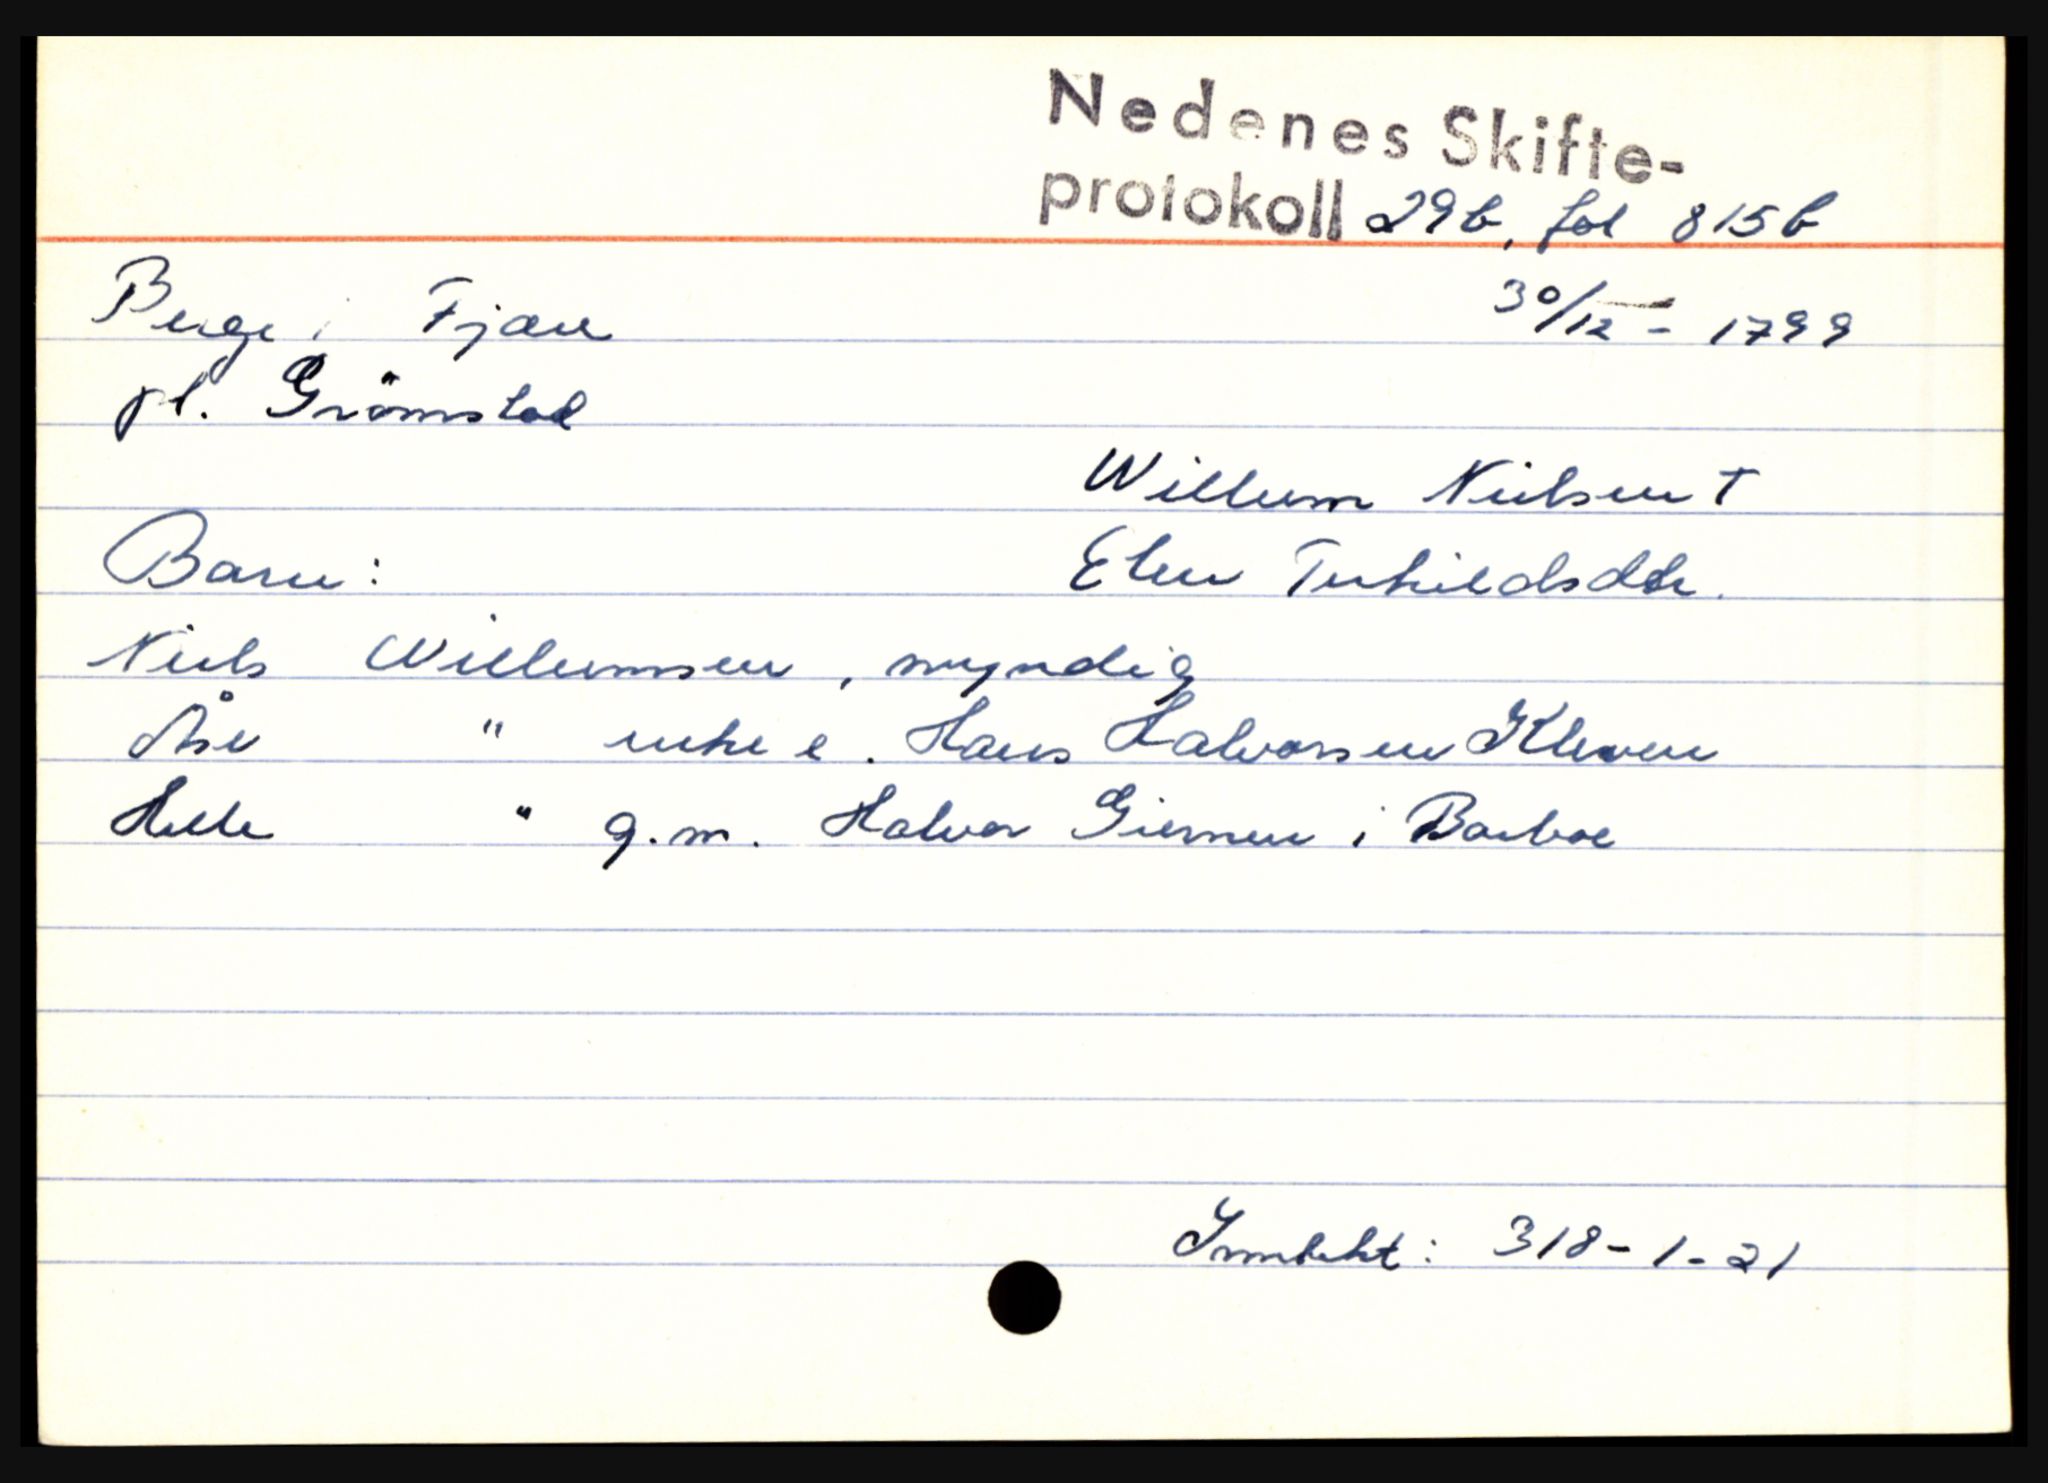 Nedenes Skifte-
protokoll 29b, fol 815b
Berge i Fjære 30/12 - 1799
pl. Grömstad
Willum Nielsen †
Barn: Elen Terkildsdtr.
Niels Willumsen, myndig
Åse " enke e. Hans Halvorsen Kleven
Helle " g.m. Halvor Giermen i Barboe
Inntekt: 318-1-21